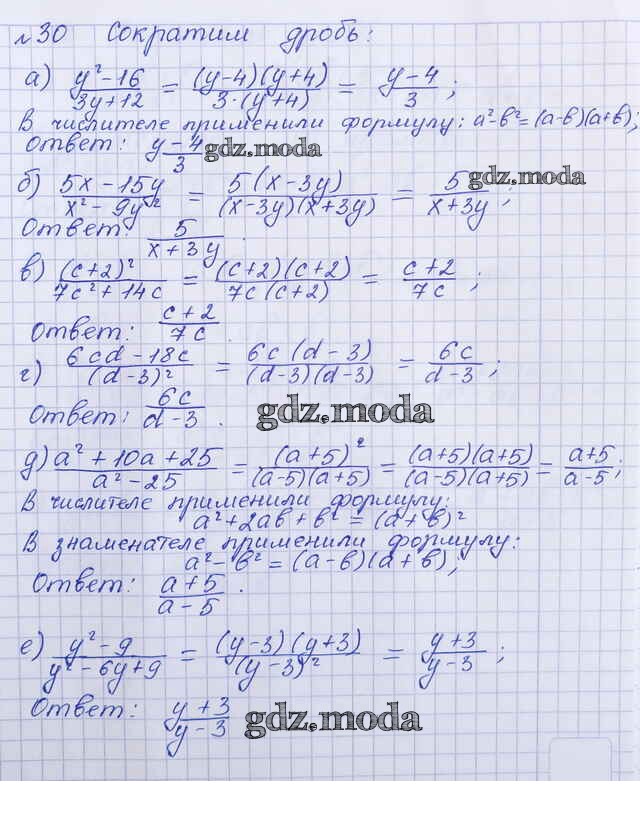 №30 Сократим дробь:
а) (y²-16)/(3y+12) = ((y-4)(y+4))/(3·(y+4)) = (y-4)/3 ;
В числителе применили формулу: a²-b²=(a-b)(a+b);
Ответ: (y-4)/3 gdz.moda
б) (5x-15y)/(x²-9y²) = (5(x-3y))/((x-3y)(x+3y)) = 5/(x+3y) ; gdz.moda
Ответ: 5/(x+3y) .
в) (c+2)²/(7c²+14c) = ((c+2)(c+2))/(7c(c+2)) = (c+2)/(7c) ;
Ответ: (c+2)/(7c) .
г) (6cd-18c)/(d-3)² = (6c(d-3))/((d-3)(d-3)) = 6c/(d-3) ;
Ответ: 6c/(d-3) . gdz.moda
д) (a²+10a+25)/(a²-25) = (a+5)²/((a-5)(a+5)) = ((a+5)(a+5))/((a-5)(a+5)) = (a+5)/(a-5) ;
В числителе применили формулу:
a²+2ab+b²=(a+b)²
В знаменателе применили формулу:
a²-b²=(a-b)(a+b);
Ответ: (a+5)/(a-5) .
е) (y²-9)/(y²-6y+9) = ((y-3)(y+3))/(y-3)² = (y+3)/(y-3) ;
Ответ: (y+3)/(y-3) gdz.moda